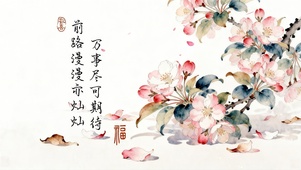 万事尽可期待
前路漫漫亦灿灿
福